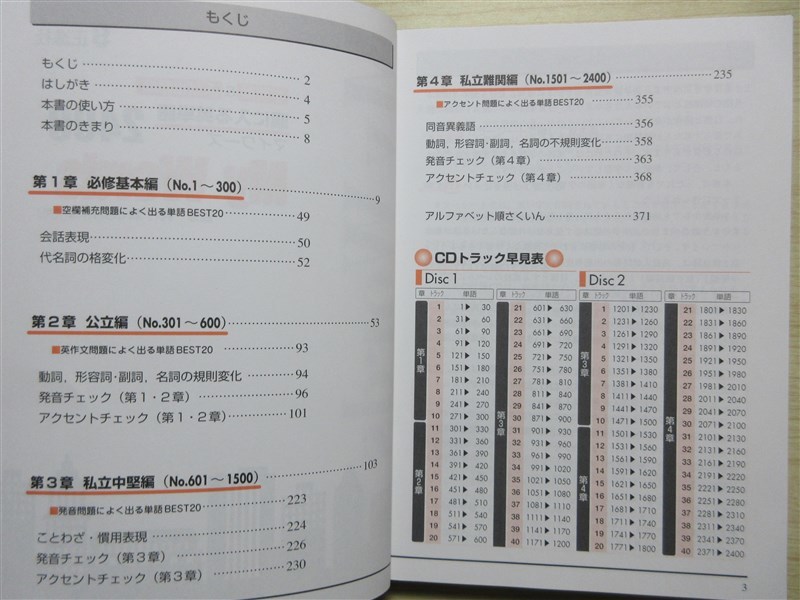 もくじ
もくじ 2
はしがき 4
本書の使い方 5
本書のきまり 8
第1章 必修基本編(No.1〜300) 9
■空欄補充問題によく出る単語BEST20 49
会話表現 50
代名詞の格変化 52
第2章 公立編(No.301〜600) 53
■英作文問題によく出る単語BEST20 93
動詞,形容詞・副詞,名詞の規則変化 94
発音チェック(第1・2章) 96
アクセントチェック(第1・2章) 101
第3章 私立中堅編(No.601〜1500) 103
■発音問題によく出る単語BEST20 223
ことわざ・慣用表現 224
発音チェック(第3章) 226
アクセントチェック(第3章) 230
第4章 私立難関編(No.1501〜2400) 235
■アクセント問題によく出る単語BEST20 355
同音異義語 356
動詞,形容詞・副詞,名詞の不規則変化 358
発音チェック(第4章) 363
アクセントチェック(第4章) 368
アルファベット順さくいん 371
CDトラック早見表
Disc 1
章 トラック 単語 章 トラック 単語
第1章
1 1▶30
2 31▶60
3 61▶90
4 91▶120
5 121▶150
6 151▶180
7 181▶210
8 211▶240
9 241▶270
10 271▶300
第2章
11 301▶330
12 331▶360
13 361▶390
14 391▶420
15 421▶450
16 451▶480
17 481▶510
18 511▶540
19 541▶570
20 571▶600
第3章
21 601▶630
22 631▶660
23 661▶690
24 691▶720
25 721▶750
26 751▶780
27 781▶810
28 811▶840
29 841▶870
30 871▶900
31 901▶930
32 931▶960
33 961▶990
34 991▶1020
35 1021▶1050
36 1051▶1080
37 1081▶1110
38 1111▶1140
39 1141▶1170
40 1171▶1200
Disc 2
章 トラック 単語 章 トラック 単語
第3章
1 1201▶1230
2 1231▶1260
3 1261▶1290
4 1291▶1320
5 1321▶1350
6 1351▶1380
7 1381▶1410
8 1411▶1440
9 1441▶1470
10 1471▶1500
第4章
11 1501▶1530
12 1531▶1560
13 1561▶1590
14 1591▶1620
15 1621▶1650
16 1651▶1680
17 1681▶1710
18 1711▶1740
19 1741▶1770
20 1771▶1800
第4章
21 1801▶1830
22 1831▶1860
23 1861▶1890
24 1891▶1920
25 1921▶1950
26 1951▶1980
27 1981▶2010
28 2011▶2040
29 2041▶2070
30 2071▶2100
31 2101▶2130
32 2131▶2160
33 2161▶2190
34 2191▶2220
35 2221▶2250
36 2251▶2280
37 2281▶2310
38 2311▶2340
39 2341▶2370
40 2371▶2400
3